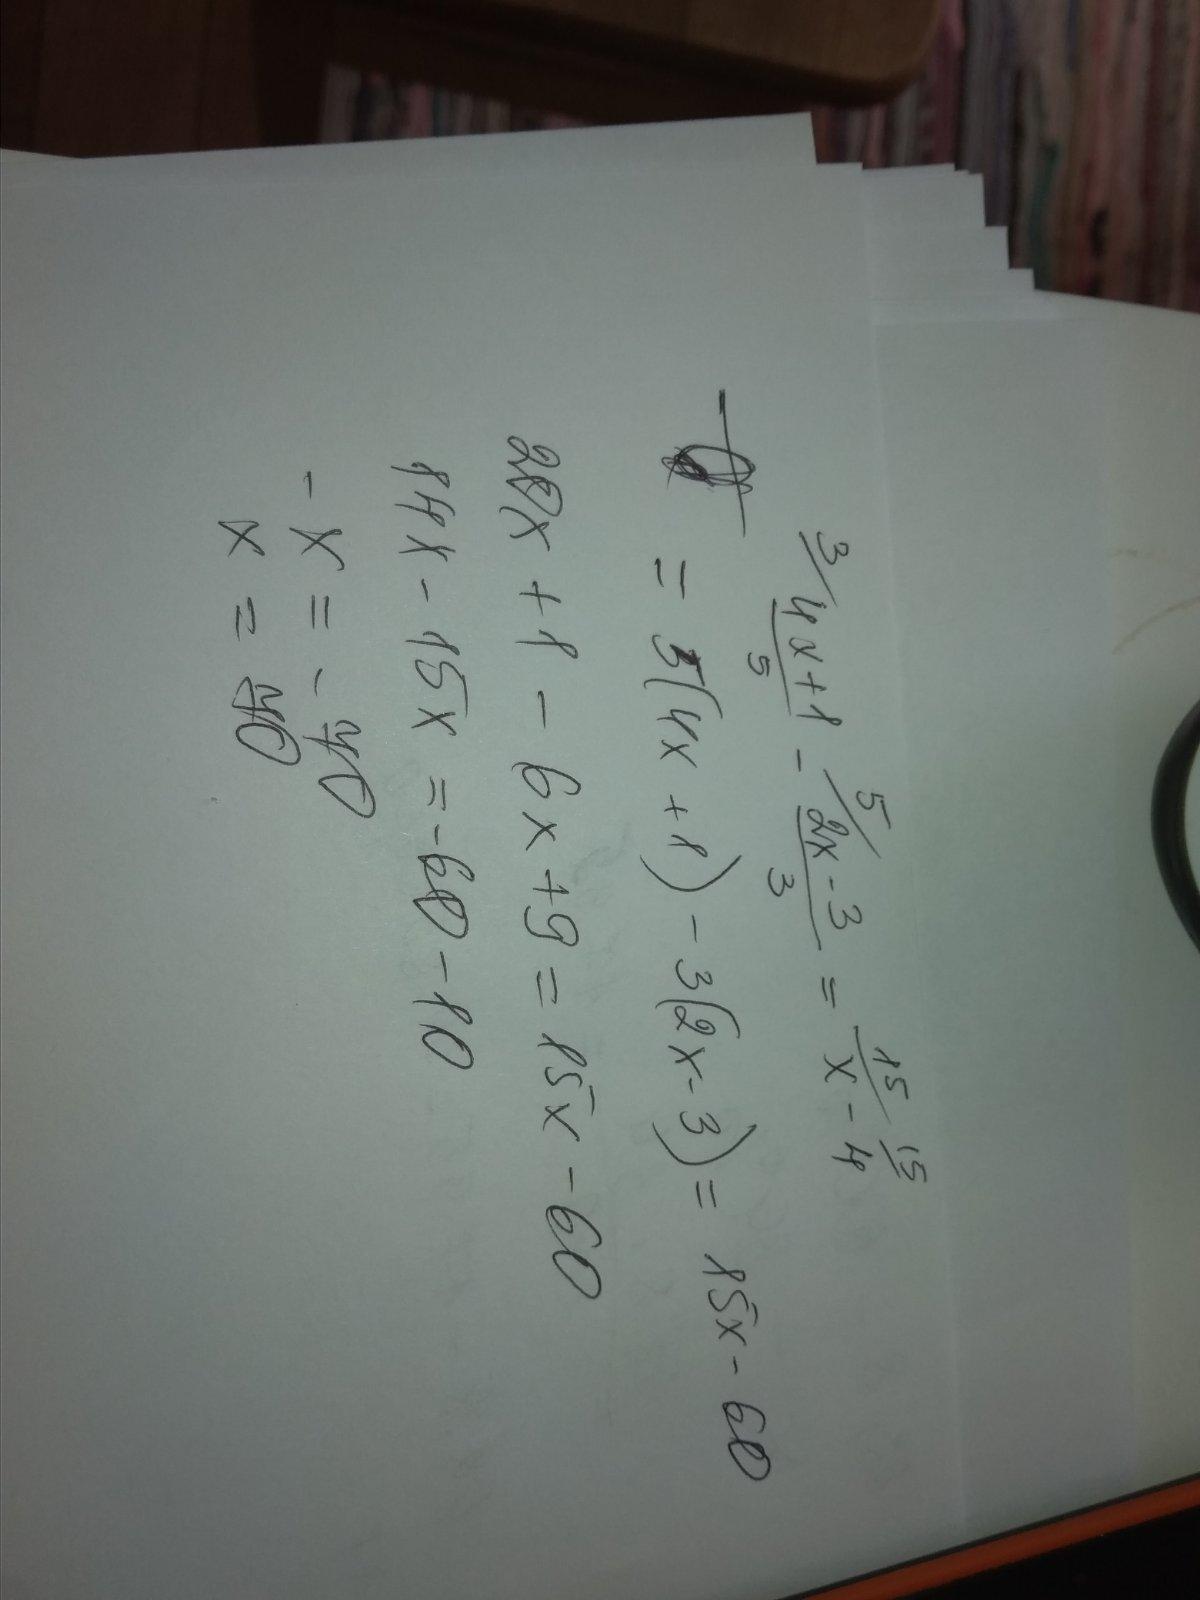 3/ 4x+1 / 5 - 5/ 2x-3 / 3 = 15/ x - 4 15/
= 5(4x + 1) - 3(2x - 3) = 15x - 60
20x + 1 - 6x + 9 = 15x - 60
14x - 15x = -60 - 10
- x = - 70
x = 70